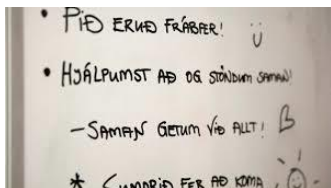 • ÞIÐ ERUÐ FRÁBÆR!
• HJÁLPUMST AÐ OG STÖNDUM SAMAN!
- SAMAN GETUM VIÐ ALLT!
* SUMARIÐ FER AÐ KOMA